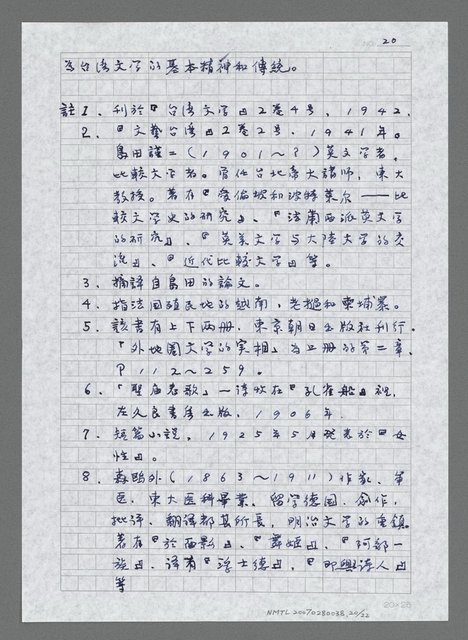 NO. 20
為台湾文学的基本精神和傳統。
註1. 刊於『台湾文学』2巻4号，1942.
2. 『文藝台湾』2巻2号，1941年。
島田謹二（1901～？）英文学者，
比較文学者。曾任台北帝大講師，東大
教授。著有『
較文学史的研究』、『法蘭西派英文学
的研究』、『英美文学与大陸文学的交
流』、『近代比較文学』等。
3. 摘譯自島田的論文。
4. 指法国殖民地的越南，老撾和柬埔寨。
5. 該書有上下两册，東京朝日出版社刊行。
「外地圏文学的実相」為上册的第二章，
P112～259。
6. 「聖廟春歌」一詩收在『孔雀船』裡，
左久良書房出版，1906年.
7. 短篇小説，1925年5月発表於『女
性』。
8. 森鴎外（1863～1911）作家、軍
医、東大医科畢業、留学德国、創作，
批評、翻譯都其所長，明治文学的重鎮
著有『於西
』、『舞姫』、『阿部一
族』，译有『浮士德』、『即興诗人』
等
NMTL 20070280038, 20/22
20×25